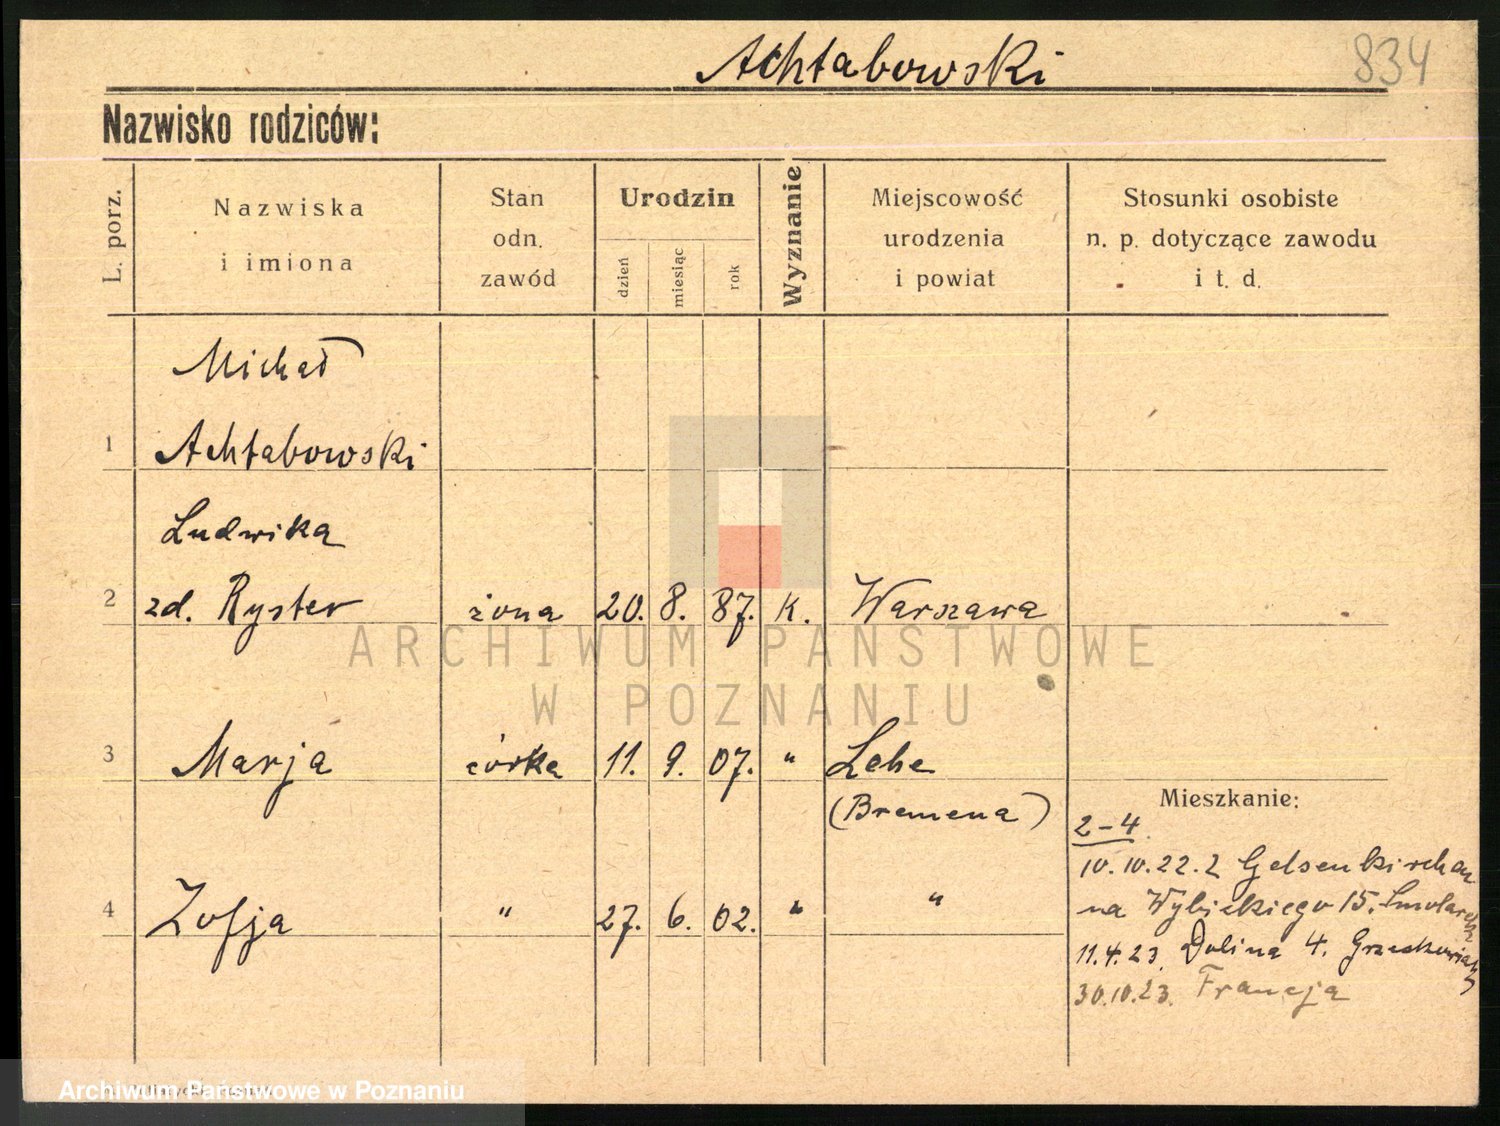 Achtabowski 834
Nazwisko rodziców:
L. porz.
Nazwiska
i imiona
Stan
odn.
zawód
Urodzin
dzień
miesiąc
rok
Wyznanie
Miejscowość
urodzenia
i powiat
Stosunki osobiste
n. p. dotyczące zawodu
i t. d.
Michał
1 Achtabowski
Ludwika
2 zd. Ryster żona 20. 8. 87. K. Warszawa
ARCHIWUM PAŃSTWOWE
W POZNANIU
3 Marja córka 11. 9. 07. " Lehe
(Bremena)
4 Zofja " 27. 6. 02. " "
Mieszkanie:
2-4.
10.10.22. z Gelsenkirchen
na Wybickiego 15. Smolarek
11.4.23. Dolina 4. Grzeskowiak
30.10.23. Francja
Archiwum Państwowe w Poznaniu